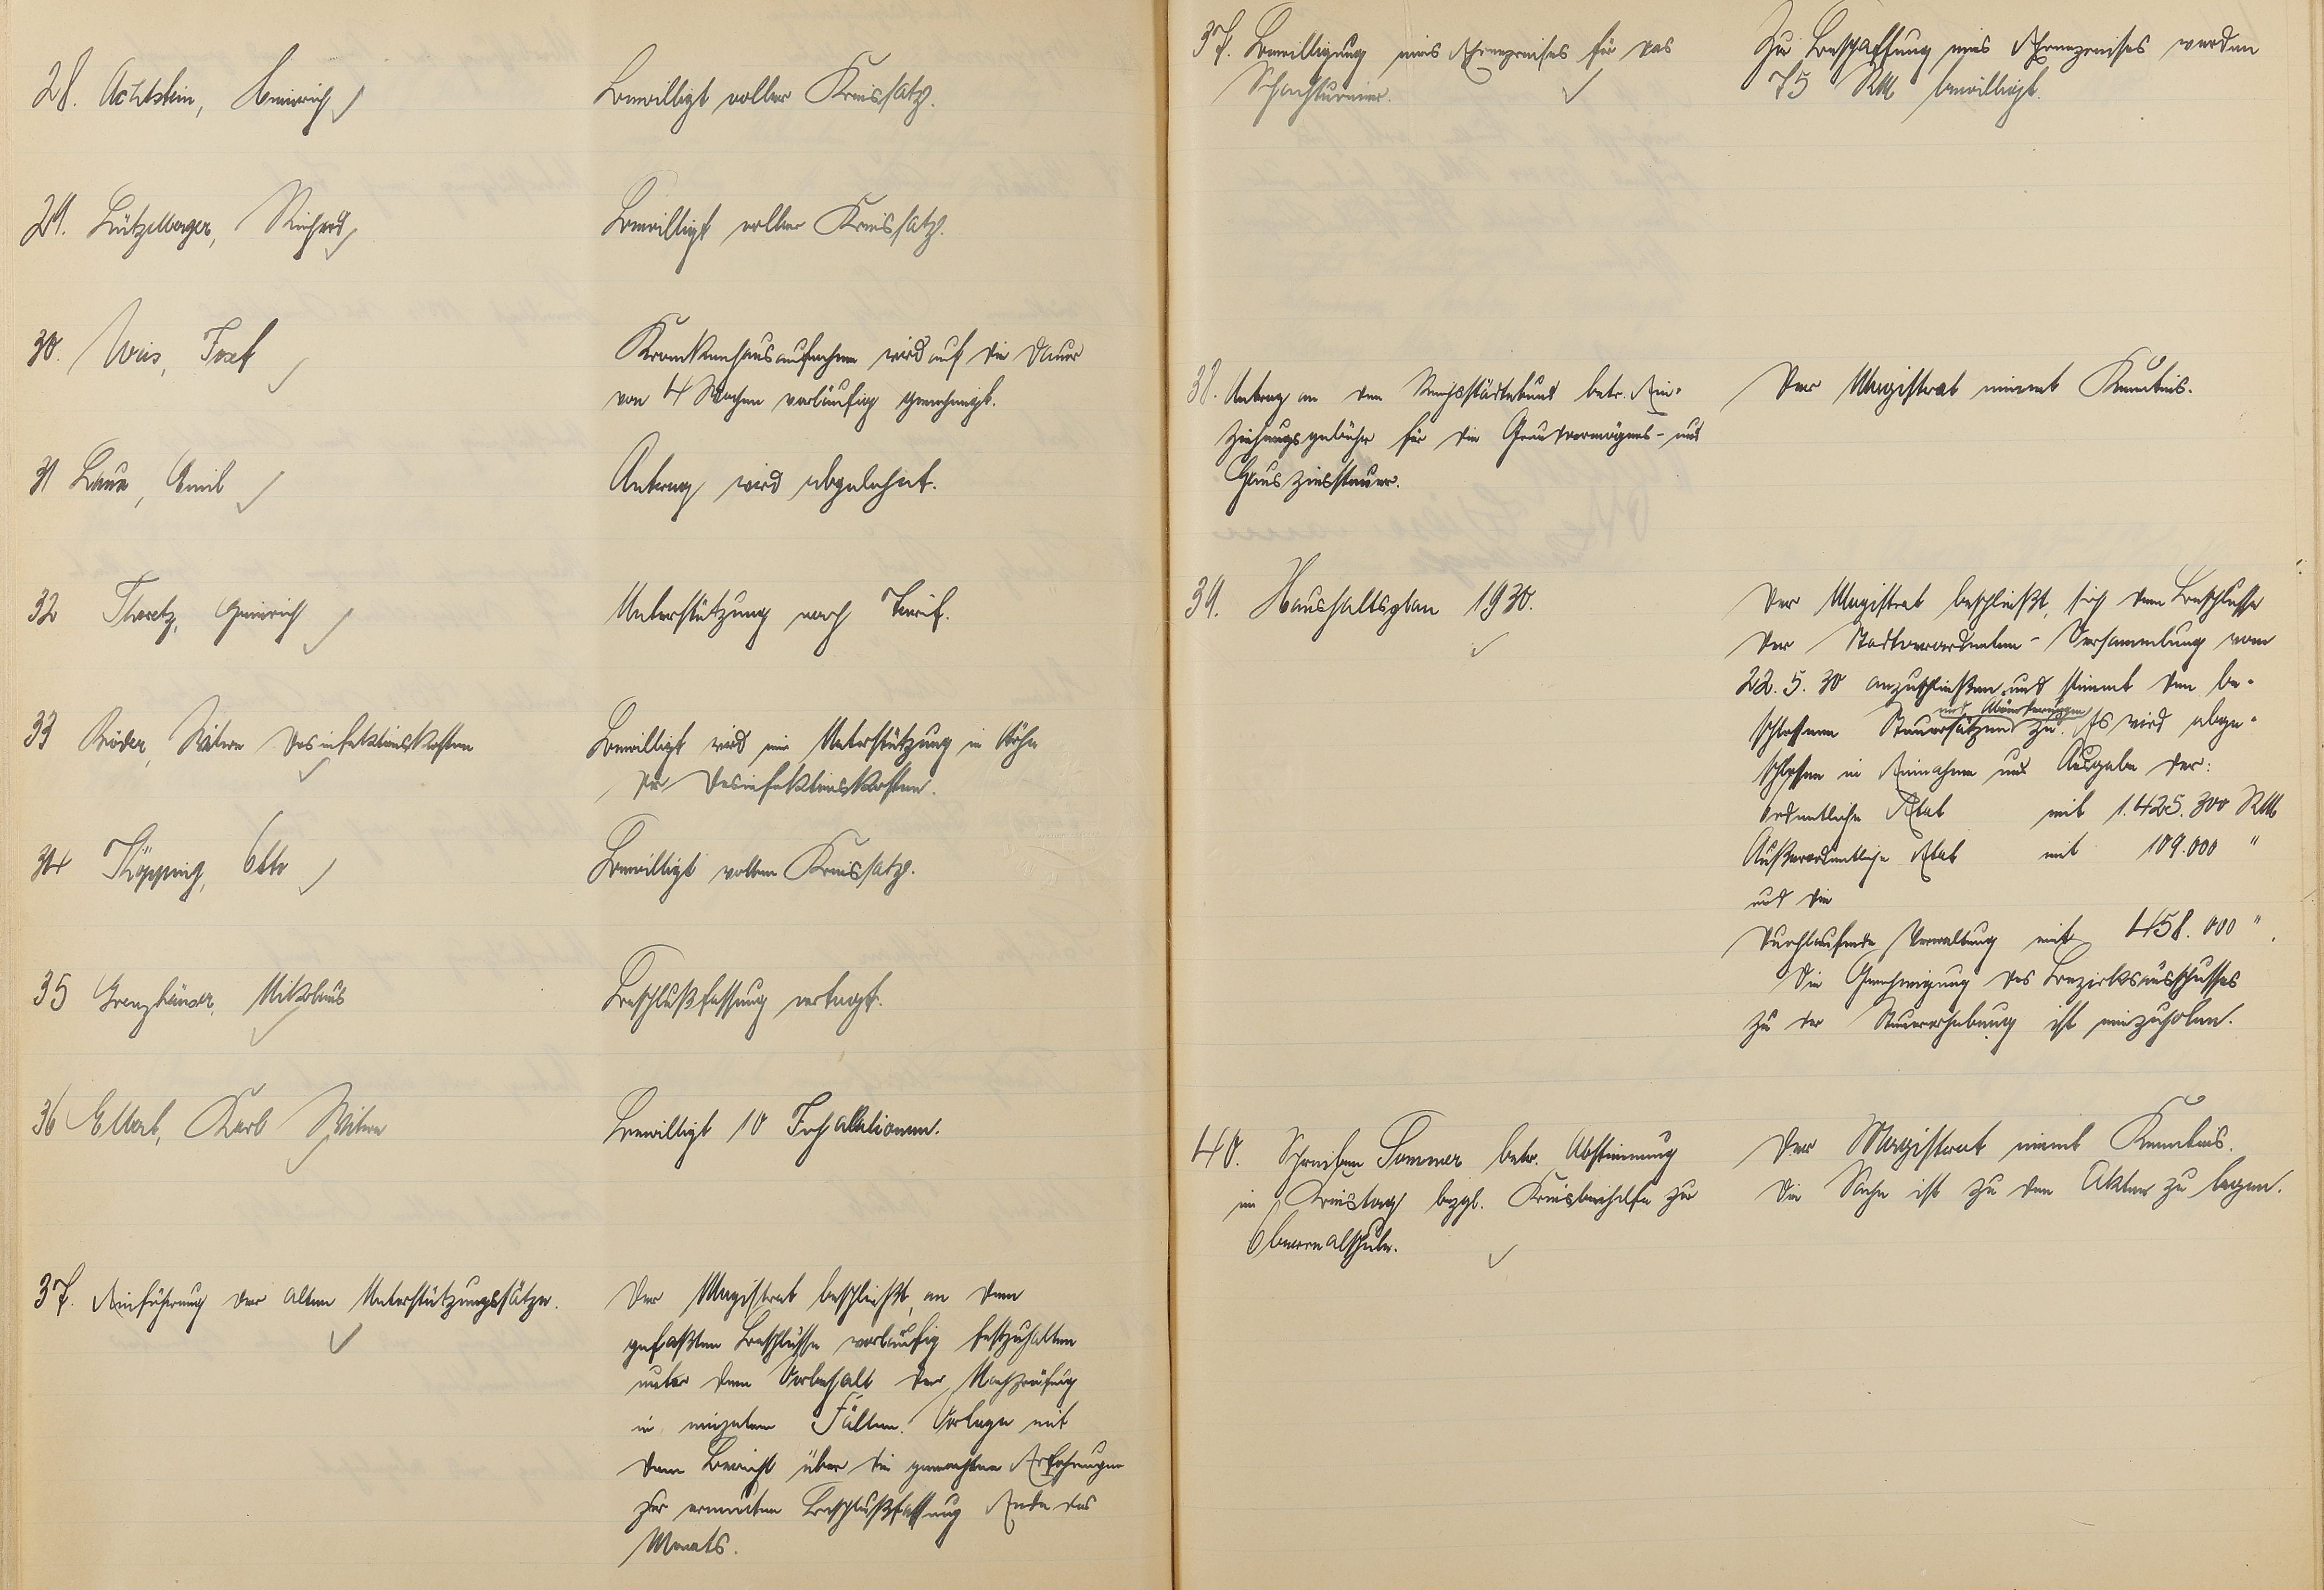 28. Achtstein, Heinrich
Bewilligt voller Kreissatz.
29. Lützelberger, Richard
Bewilligt voller Kreissatz.
30. Weis, Josef
Krankenhausaufnahme wird auf die Dauer
von 4 Wochen vorläufig genehmigt.
31 Laux, Emil
Antrag wird abgelehnt.
32 Heinrich
Unterstützung nach Tarif.
33 Röder, Witwe Desinfektionskosten
Bewilligt wird eine Unterstützung in Höhe
der Desinfektionskosten.
34 Köpping, Otto
Bewilligt vollen Kreissatz.
35 Grenzhäuser, Nikolaus
Beschlußfassung vertagt.
36 Ellert, Karl Witwe
Bewilligt 10 Inhalationen.
37. Einführung der alten Unterstützungssätze.
Der Magistrat beschließt, an dem
gefaßten Beschlusse vorläufig festzuhalten
unter dem Vorbehalt der Nachprüfung
in einzelnen Fällen. Vorlage mit
dem Bericht über die gemachten Erfahrungen
zur erneuten Beschlußfassung Ende des
Monats.
37. Bewilligung eines Ehrenpreises für das
Schachturnier.
Zur Beschaffung eines Ehrenpreises werden
75 RM bewilligt.
38. Antrag an den Reichsstädtebund betr. Ein-
ziehungsgebühr für die Grundvermögens- und
Hauszinssteuer.
Der Magistrat nimmt Kenntnis.
39. Haushaltsplan 1930.
Der Magistrat beschließt, sich dem Beschlusse
der Stadtverordneten-Versammlung vom
22. 5. 30 anzuschließen und stimmt den be-
schlossenen Steuersätzen und Abänderungen zu. Es wird abge-
schlossen in Einnahme und Ausgabe der:
Ordentliche Etat mit 1.425.300 RM
Außerordentliche Etat mit 109.000 "
und die
durchlaufende Verwaltung mit 458.000 ".
Die Genehmigung des Bezirksausschusses
zu der Steuererhebung ist einzuholen.
40. Schreiben Sommer betr. Abstimmung
im Kreistag bezgl. Kreisbeihilfe zur
Oberrealschule.
Der Magistrat nimmt Kenntnis.
Die Sache ist zu den Akten zu legen.